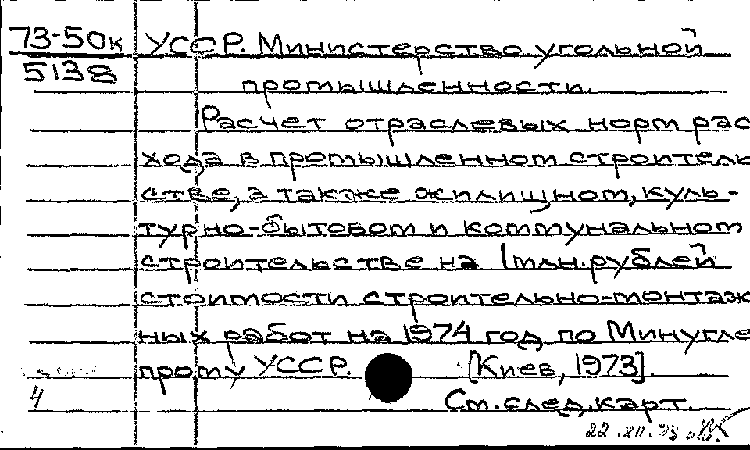 73-50к УССР. Министерство угольной
5138
промышленности.
Расчет отраслевых норм рас
хода в промышленном строитель
стве, а также жилищном, куль-
турно-бытовом и коммунальном
строительстве на 1 млн. рублей
стоимости строительно-монтаж
ных работ на 1974 год по Минугле
прому УССР. [Киев, 1973].
4
См. след. карт.
22.XII.73